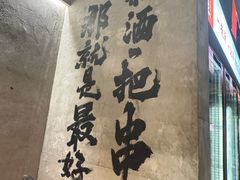 酒一把串
那就是最好